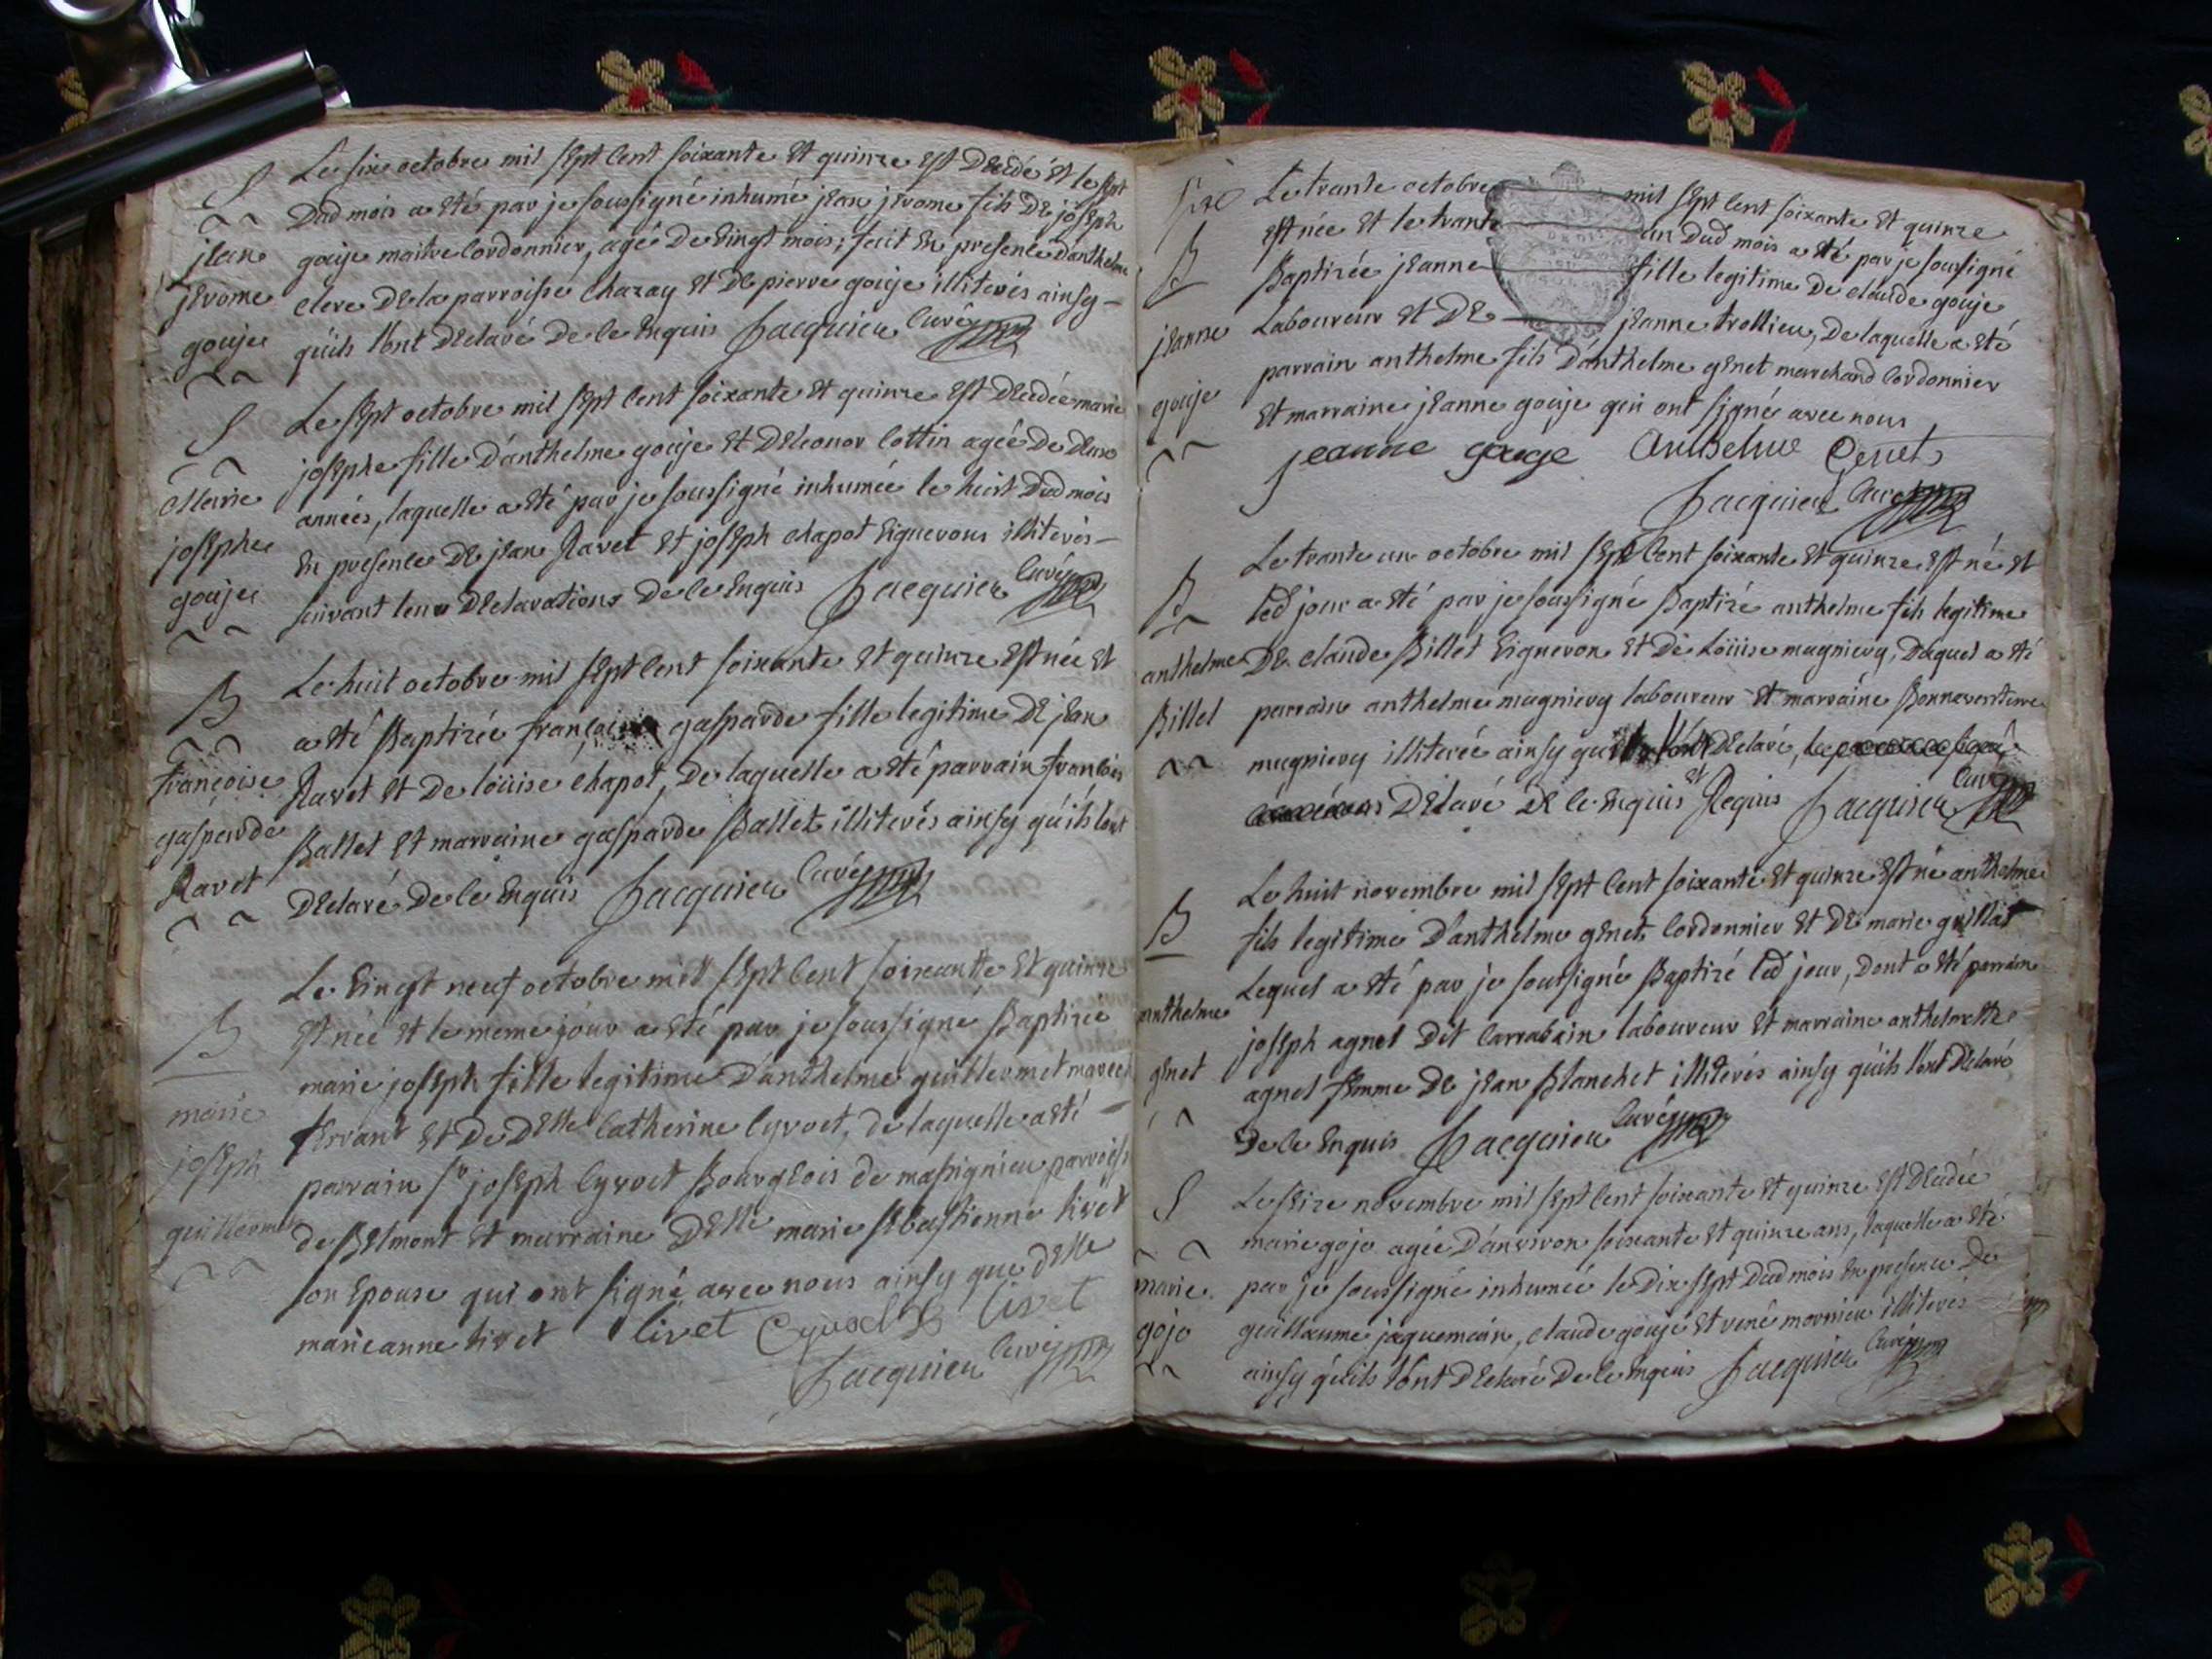 S
jean
jerome
gouje
Le six octobre mil sept cent soixante et quinze est décédé et le sept
dud mois a été par je soussigné inhumé jean jerome fils de joseph
gouje maitre cordonnier, agé de vingt mois; fait en presence d'anthelme
clerc de la parroisse chazay et de pierre gouje illiterés ainsy
qu'ils l'ont déclaré de ce enquis Jacquieu curé
S
Marie
josephe
gouje
Le sept octobre mil sept cent soixante et quinze est décédée marie
josephe fille d'anthelme gouje et d'eleonor cottin agée de deux
années, laquelle a été par je soussigné inhumée le huit dud mois
en presence de jean Ravet et joseph chapot vignerons illiterés
suivant leur déclarations de ce enquis Jacquieu curé
B
françoise
gasparde
Ravet
Le huit octobre mil sept cent soixante et quinze est née et
a été Baptizée françoise gasparde fille legitime de jean
Ravet et de loüise chapot, de laquelle a été parrain françois
Ballet et marraine gasparde Ballet illiterés ainsy qu'ils l'ont
déclaré de ce enquis Jacquieu curé
B
marie
joseph
guillermet
Le vingt neuf octobre mil sept cent soixante et quinze
est née et le meme jour a été par je soussigné Baptizée
marie joseph fille legitime d'anthelme guillermet
et de delle catherine Cyvoct, de laquelle a été
parrain sr joseph Cyvoct Bourgeois de massignieu parroisse
de Belmont et marraine delle marie sebastienne livet
son epouse qui ont signé avec nous ainsy que delle
marieanne livet livet Cyvoct livet
Jacquieu curé
B
jeanne
gouje
Le trante octobre mil sept cent soixante et quinze
est née et le trante un dud mois a été par je soussigné
Baptizée jeanne fille legitime de claude gouje
Laboureur et de jeanne trollieu, de laquelle a été
parrain anthelme fils d'anthelme genet marchand cordonnier
et marraine jeanne gouje qui ont signé avec nous
jeanne gouge Anthelme Genet
Jacquieu curé
B
anthelme
Billet
Le trante un octobre mil sept cent soixante et quinze est né et
led jour a été par je soussigné Baptizé anthelme fils legitime
de claude Billet vigneron et de Loüise magnieny, duquel a été
parrain anthelme magnieny laboureur et marraine Bonnaventure
magnieny illiterée ainsy déclaré,
déclaré de ce enquis et Requis Jacquieu curé
B
anthelme
genet
Le huit novembre mil sept cent soixante et quinze est né anthelme
fils legitime d'anthelme genet cordonnier et de marie guillot
Lequel a été par je soussigné Baptizé led jour, dont a été parrain
joseph agnel dit carrabain laboureur et marraine anthelmette
agnel femme de jean Blanchet illiterés ainsy qu'ils l'ont déclaré
de ce enquis Jacquieu curé
S
marie
gojo
Le seize novembre mil sept cent soixante et quinze est décédée
marie gojo agée d'anviron soixante et quinze ans, laquelle a été
par je soussigné inhumée le dix sept dud mois en presence de
guillaume jaquemain, claude gouje et rené mornieu illiterés
ainsy qu'ils l'ont déclaré de ce enquis Jacquieu curé